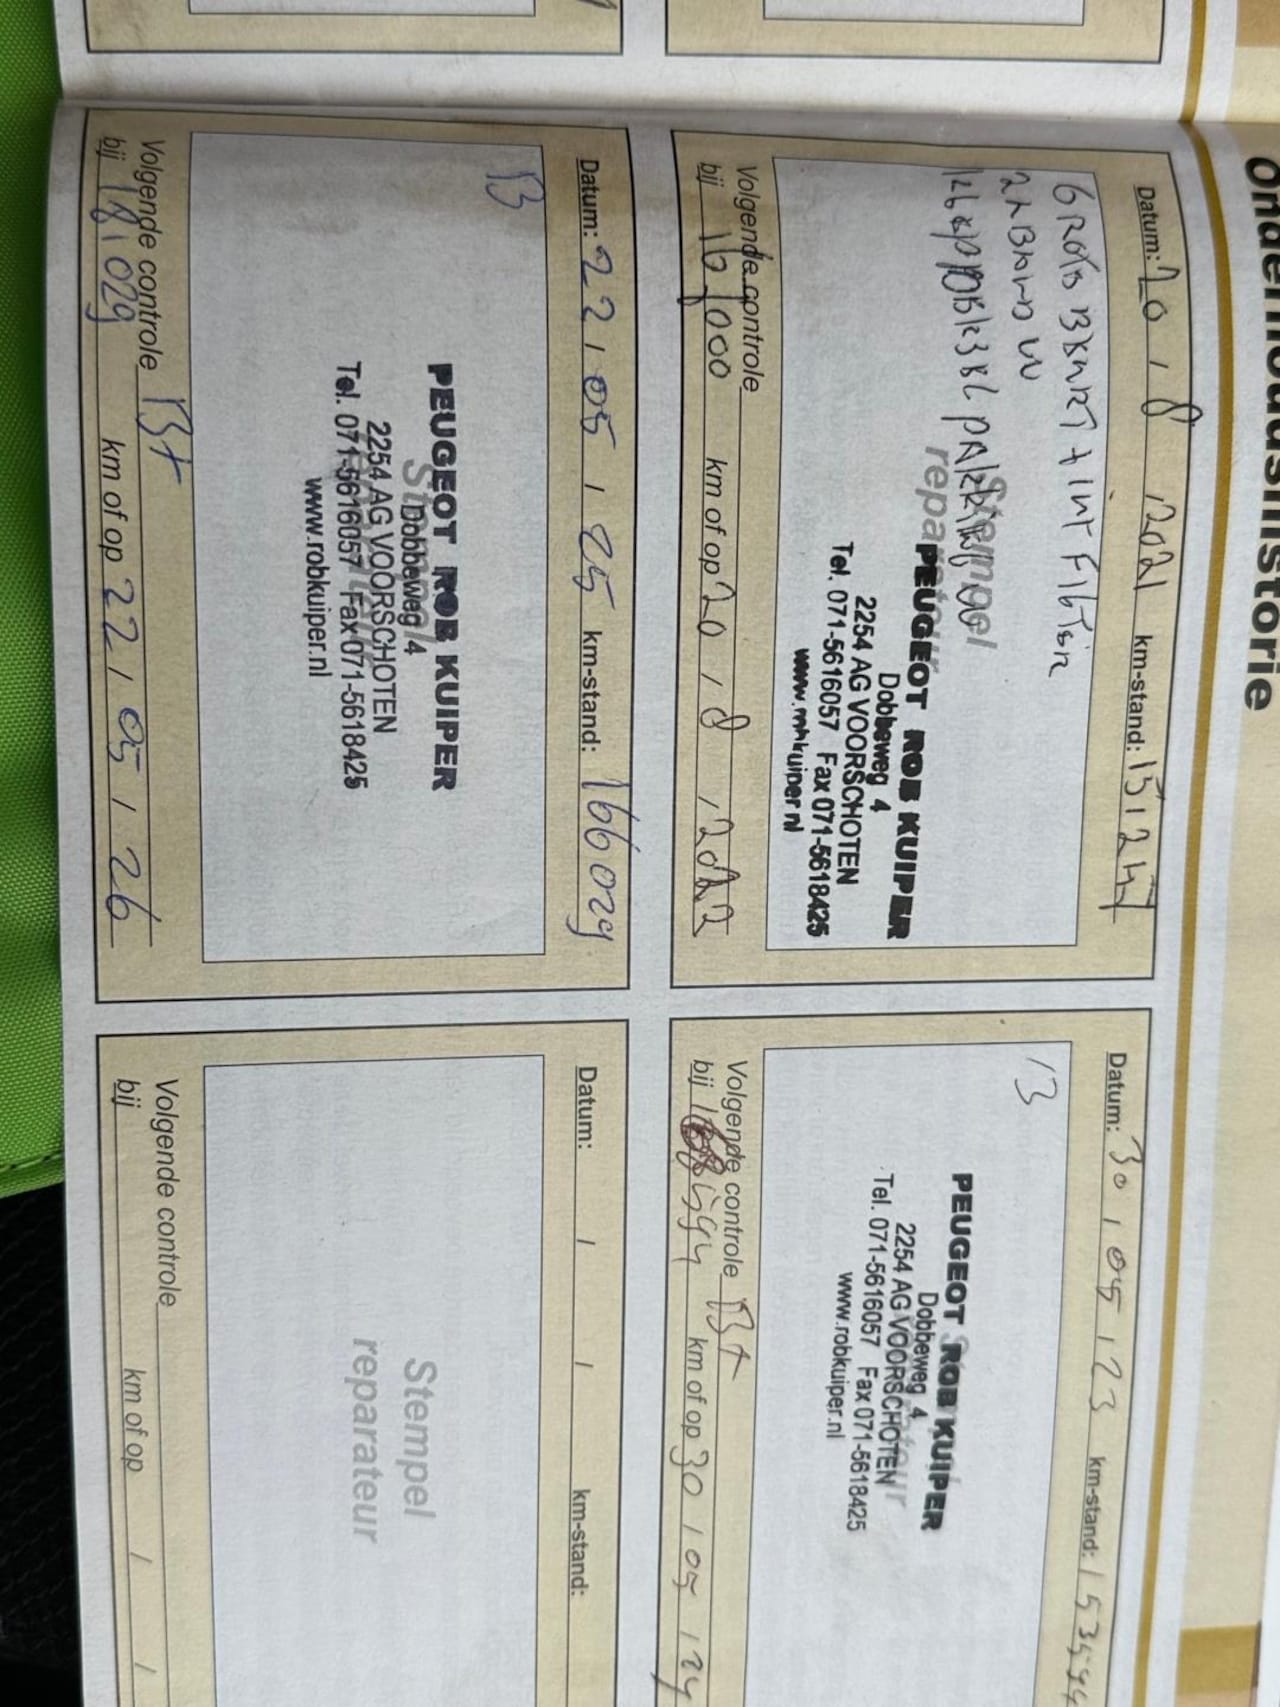 Onderhoudshistorie
Datum: 20 / 8 / 2021 km-stand: 151247
GROTE BEURT + INT FILTER
Stempel
reparateur
PEUGEOT ROB KUIPER
Dobbeweg 4
2254 AG VOORSCHOTEN
Tel. 071-5616057 Fax 071-5618425
www.robkuiper.nl
Volgende controle
bij 167000 km of op 20 / 8 / 2022
Datum: 30 / 05 / 23 km-stand:
B
PEUGEOT ROB KUIPER
Dobbeweg 4
2254 AG VOORSCHOTEN
Tel. 071-5616057 Fax 071-5618425
www.robkuiper.nl
Volgende controle B+
bij km of op 30 / 05 / 24
Datum: 22 / 05 / 25 km-stand: 166029
B
Stempel
PEUGEOT ROB KUIPER
Dobbeweg 4
2254 AG VOORSCHOTEN
Tel. 071-5616057 Fax 071-5618425
www.robkuiper.nl
Volgende controle B+
bij 181029 km of op 22 / 05 / 26
Datum: / / km-stand:
Stempel
reparateur
Volgende controle
bij km of op / /